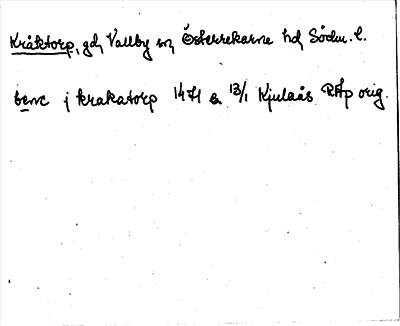 Kråktorp, gd, Vallby sn, Österrekarne hd, Södm. l.
benc j krakatorp 1471 13/1 Kjulaås RAp orig.